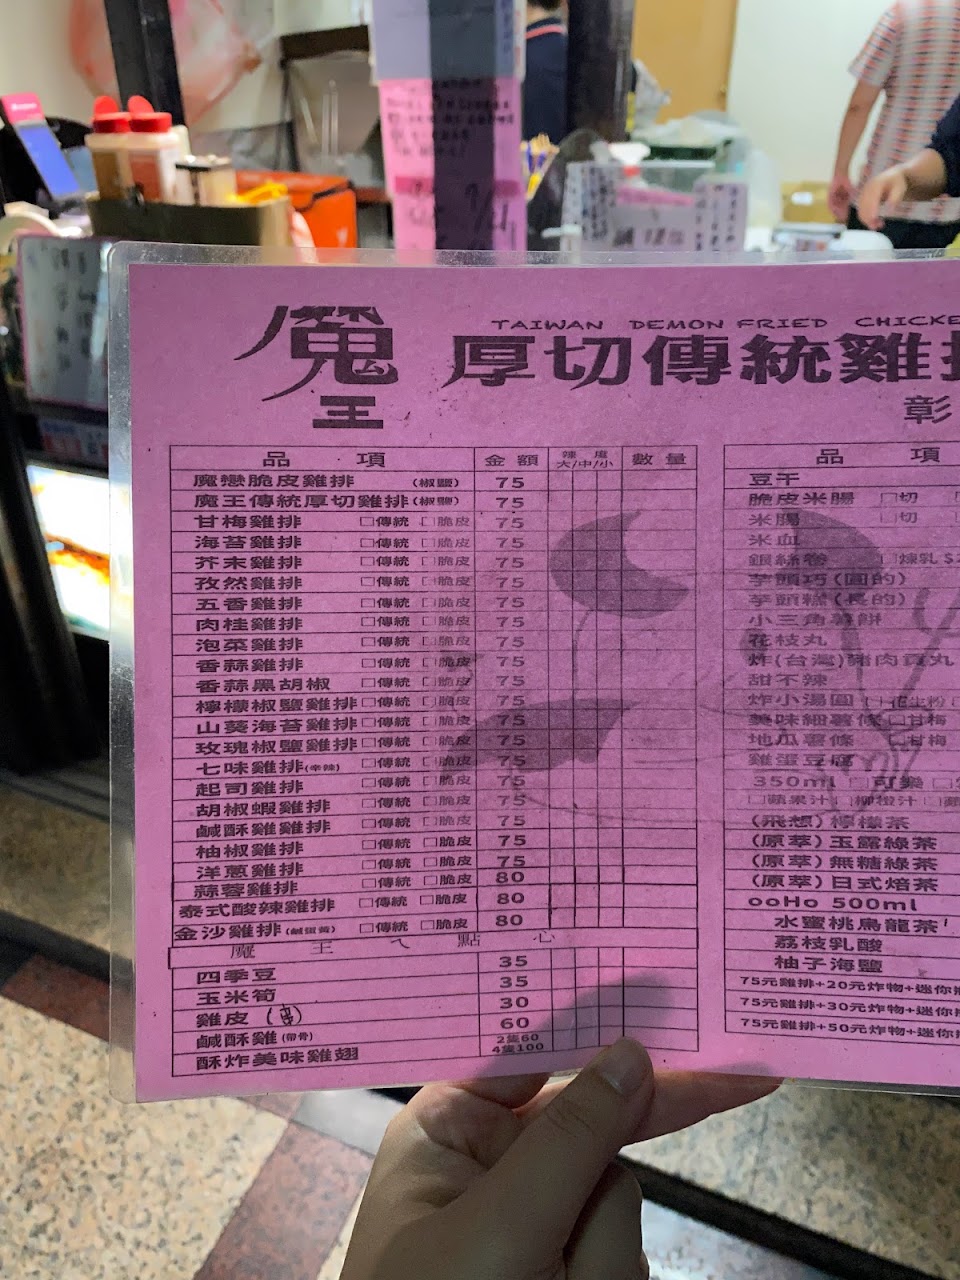 魔王
TAIWAN DEMON FRIED CHICKE
厚切傳統雞排
彰
品 項 金 額 辣 度 大/中/小 數 量
魔戀脆皮雞排 (椒鹽) 75
魔王傳統厚切雞排 (椒鹽) 75
甘梅雞排 □傳統 □脆皮 75
海苔雞排 □傳統 □脆皮 75
芥末雞排 □傳統 □脆皮 75
孜然雞排 □傳統 □脆皮 75
五香雞排 □傳統 □脆皮 75
肉桂雞排 □傳統 □脆皮 75
泡菜雞排 □傳統 □脆皮 75
香蒜雞排 □傳統 □脆皮 75
香蒜黑胡椒 □傳統 □脆皮 75
檸檬椒鹽雞排 □傳統 □脆皮 75
山葵海苔雞排 □傳統 □脆皮 75
玫瑰椒鹽雞排 □傳統 □脆皮 75
七味雞排(辛辣) □傳統 □脆皮 75
起司雞排 □傳統 □脆皮 75
胡椒蝦雞排 □傳統 □脆皮 75
鹹酥雞雞排 □傳統 □脆皮 75
柚椒雞排 □傳統 □脆皮 75
洋蔥雞排 □傳統 □脆皮 75
蒜蓉雞排 □傳統 □脆皮 80
泰式酸辣雞排 □傳統 □脆皮 80
金沙雞排(鹹蛋黃) □傳統 □脆皮 80
魔 王 ㄟ 點 心
四季豆 35
玉米筍 35
雞皮 30
鹹酥雞(帶骨) 60
酥炸美味雞翅 2隻60 4隻100
品 項
豆干
脆皮米腸 □切
米腸 □切
米血
銀絲卷 □煉乳
芋頭巧(圓的)
芋頭糕(長的)
小三角薯餅
花枝丸
炸(台灣)豬肉貢丸
甜不辣
炸小湯圓 □花生粉
美味細薯條 □甘梅
地瓜薯條 □甘梅
雞蛋豆腐
350ml □可樂
□蘋果汁 □柳橙汁
(飛想)檸檬茶
(原萃)玉露綠茶
(原萃)無糖綠茶
(原萃)日式焙茶
ooHo 500ml
水蜜桃烏龍茶
荔枝乳酸
柚子海鹽
75元雞排+20元炸物+迷你
75元雞排+30元炸物+迷你
75元雞排+50元炸物+迷你